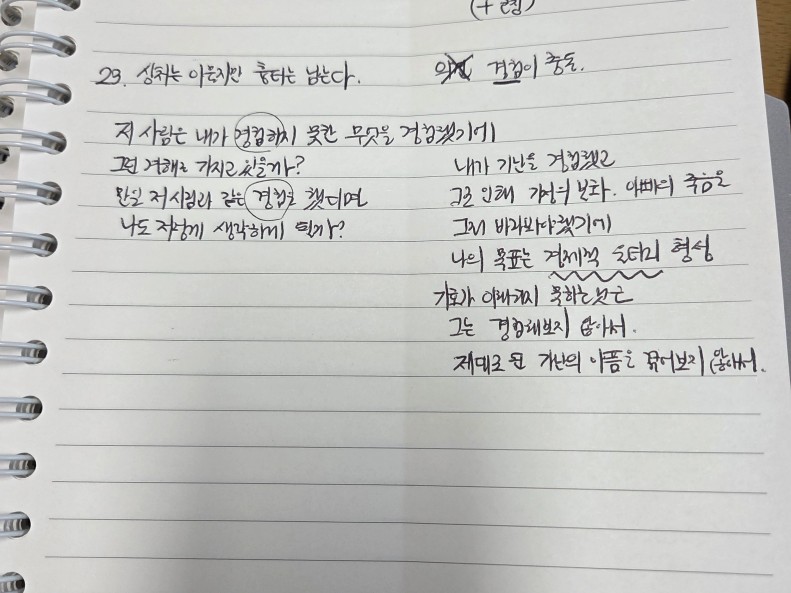 (+ 2장)
23. 상처는 아물지만 흉터는 남는다.
경험이 충돌.
저 사람은 내가 경험하지 못한 무엇을 경험했기에
그런 견해를 가지고 있을까?
만일 저 사람과 같은 경험을 했다면
나도 저렇게 생각하게 될까?
내가 가난을 경험했고
그로 인해 가정의 분화. 아빠의 죽음을
그저 바라봐야했기에
나의 목표는 경제적 울타리 형성
이해하지 못하는
그는 경험해보지 않아서.
제대로 된 가난의 아픔을 겪어보지 않아서.